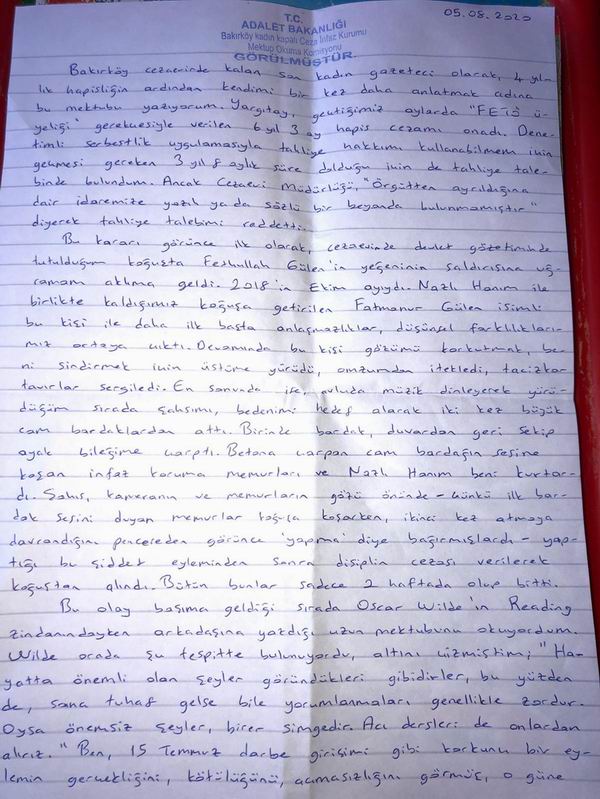 05.08.2020
T.C.
ADALET BAKANLIĞI
Bakırköy kadın kapalı Ceza İnfaz Kurumu
Mektup Okuma Komisyonu
GÖRÜLMÜŞTÜR.
Bakırköy cezaevinde kalan son kadın gazeteci olarak, 4 yıl-
lık hapisliğin ardından kendimi bir kez daha anlatmak adına
bu mektubu yazıyorum. Yargıtay, geçtiğimiz aylarda "FETÖ ü-
yeliği" gerekçesiyle verilen 6 yıl 3 ay hapis cezamı onadı. Dene-
timli serbestlik uygulamasıyla tahliye hakkımı kullanabilmem için
geçmesi gereken 3 yıl 8 aylık süre dolduğu için de tahliye tale-
binde bulundum. Ancak Cezaevi Müdürlüğü, "Örgütten ayrıldığına
dair idaremize yazılı ya da sözlü bir beyanda bulunmamıştır"
diyerek tahliye talebimi reddetti.
Bu kararı görünce ilk olarak, cezaevinde devlet gözetiminde
tutulduğum koğuşta Fethullah Gülen'in yeğeninin saldırısına uğ-
ramam aklıma geldi. 2018'in Ekim ayıydı. Nazlı Hanım ile
birlikte kaldığımız koğuşa getirilen Fatmanur Gülen isimli
bu kişi ile daha ilk başta anlaşmazlıklar, düşünsel farklılıkları-
mız ortaya çıktı. Devamında bu kişi gözümü korkutmak, be-
ni sindirmek için üstüme yürüdü, omzumdan itekledi, tacizkar
tavırlar sergiledi. En sonunda ise, avluda müzik dinleyerek yürü-
düğüm sırada şahsımı, bedenimi hedef alarak iki kez büyük
cam bardaklardan attı. Birinde bardak, duvardan geri sekip
ayak bileğime çarptı. Betona çarpan cam bardağın sesine
koşan infaz koruma memurları ve Nazlı Hanım beni kurtar-
dı. Şahıs, kameranın ve memurların gözü önünde - çünkü ilk bar-
dak sesini duyan memurlar koğuşa koşarken, ikinci kez atmaya
davrandığını pencereden görünce 'yapma' diye bağırmışlardı - yap-
tığı bu şiddet eyleminden sonra disiplin cezası verilerek
koğuştan alındı. Bütün bunlar sadece 2 haftada olup bitti.
Bu olay başıma geldiği sırada Oscar Wilde'in Reading
zindanındayken arkadaşına yazdığı uzun mektubunu okuyordum.
Wilde orada şu tespitte bulunuyordu, altını çizmiştim; "Ha-
yatta önemli olan şeyler göründükleri gibidirler, bu yüzden
de, sana tuhaf gelse bile yorumlanmaları genellikle zordur.
Oysa önemsiz şeyler, birer simgedir. Acı dersleri de onlardan
alırız." Ben, 15 Temmuz darbe girişimi gibi korkunç bir ey-
lemin gerçekliğini, kötülüğünü, acımasızlığını görmüş, o güne